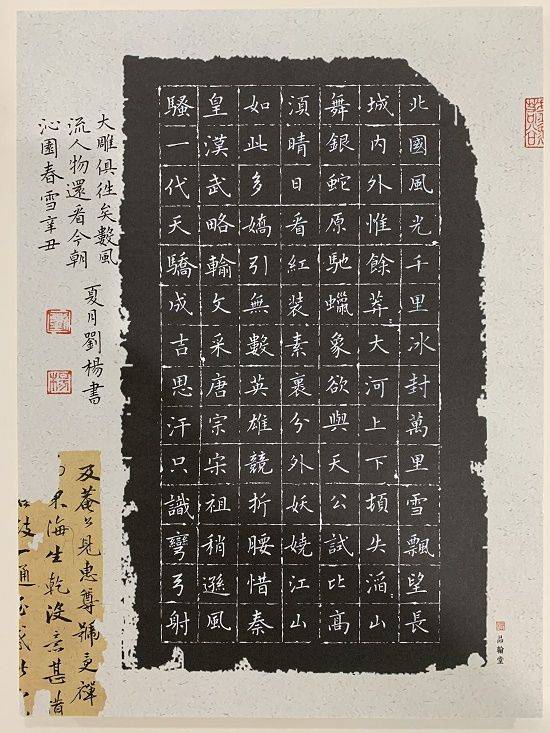 北國風光千里冰封萬里雪飄望長
城內外惟餘莽大河上下頓失滔山
舞銀蛇原馳蠟象欲與天公試比高
湏晴日看紅裝素裹分外妖嬈江山
如此多嬌引無數英雄競折腰惜秦
皇漢武略輸文采唐宗宋祖稍遜風
騷一代天驕成吉思汗只識彎弓射
大雕俱徃矣數風
流人物還看今朝
沁園春雪辛丑
夏月劉楊書
劉
楊
品翰堂
見惠尊號
東海生乾沒意甚
一通